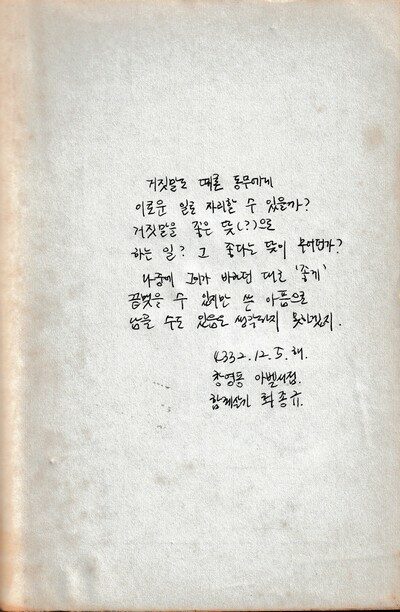 거짓말도 때론 동무에게
이로운 일로 자리할 수 있을까?
거짓말을 좋은 뜻(?)으로
하는 일? 그 좋다는 뜻이 무어던가?
나중에 그이가 바라던 대로 '좋게'
끝맺을 수 있지만 쓴 아픔으로
남을 수도 있음은 생각하지 못하겠지.
4332.12.5.해.
창영동 아벨서점.
함께살기 최종규.